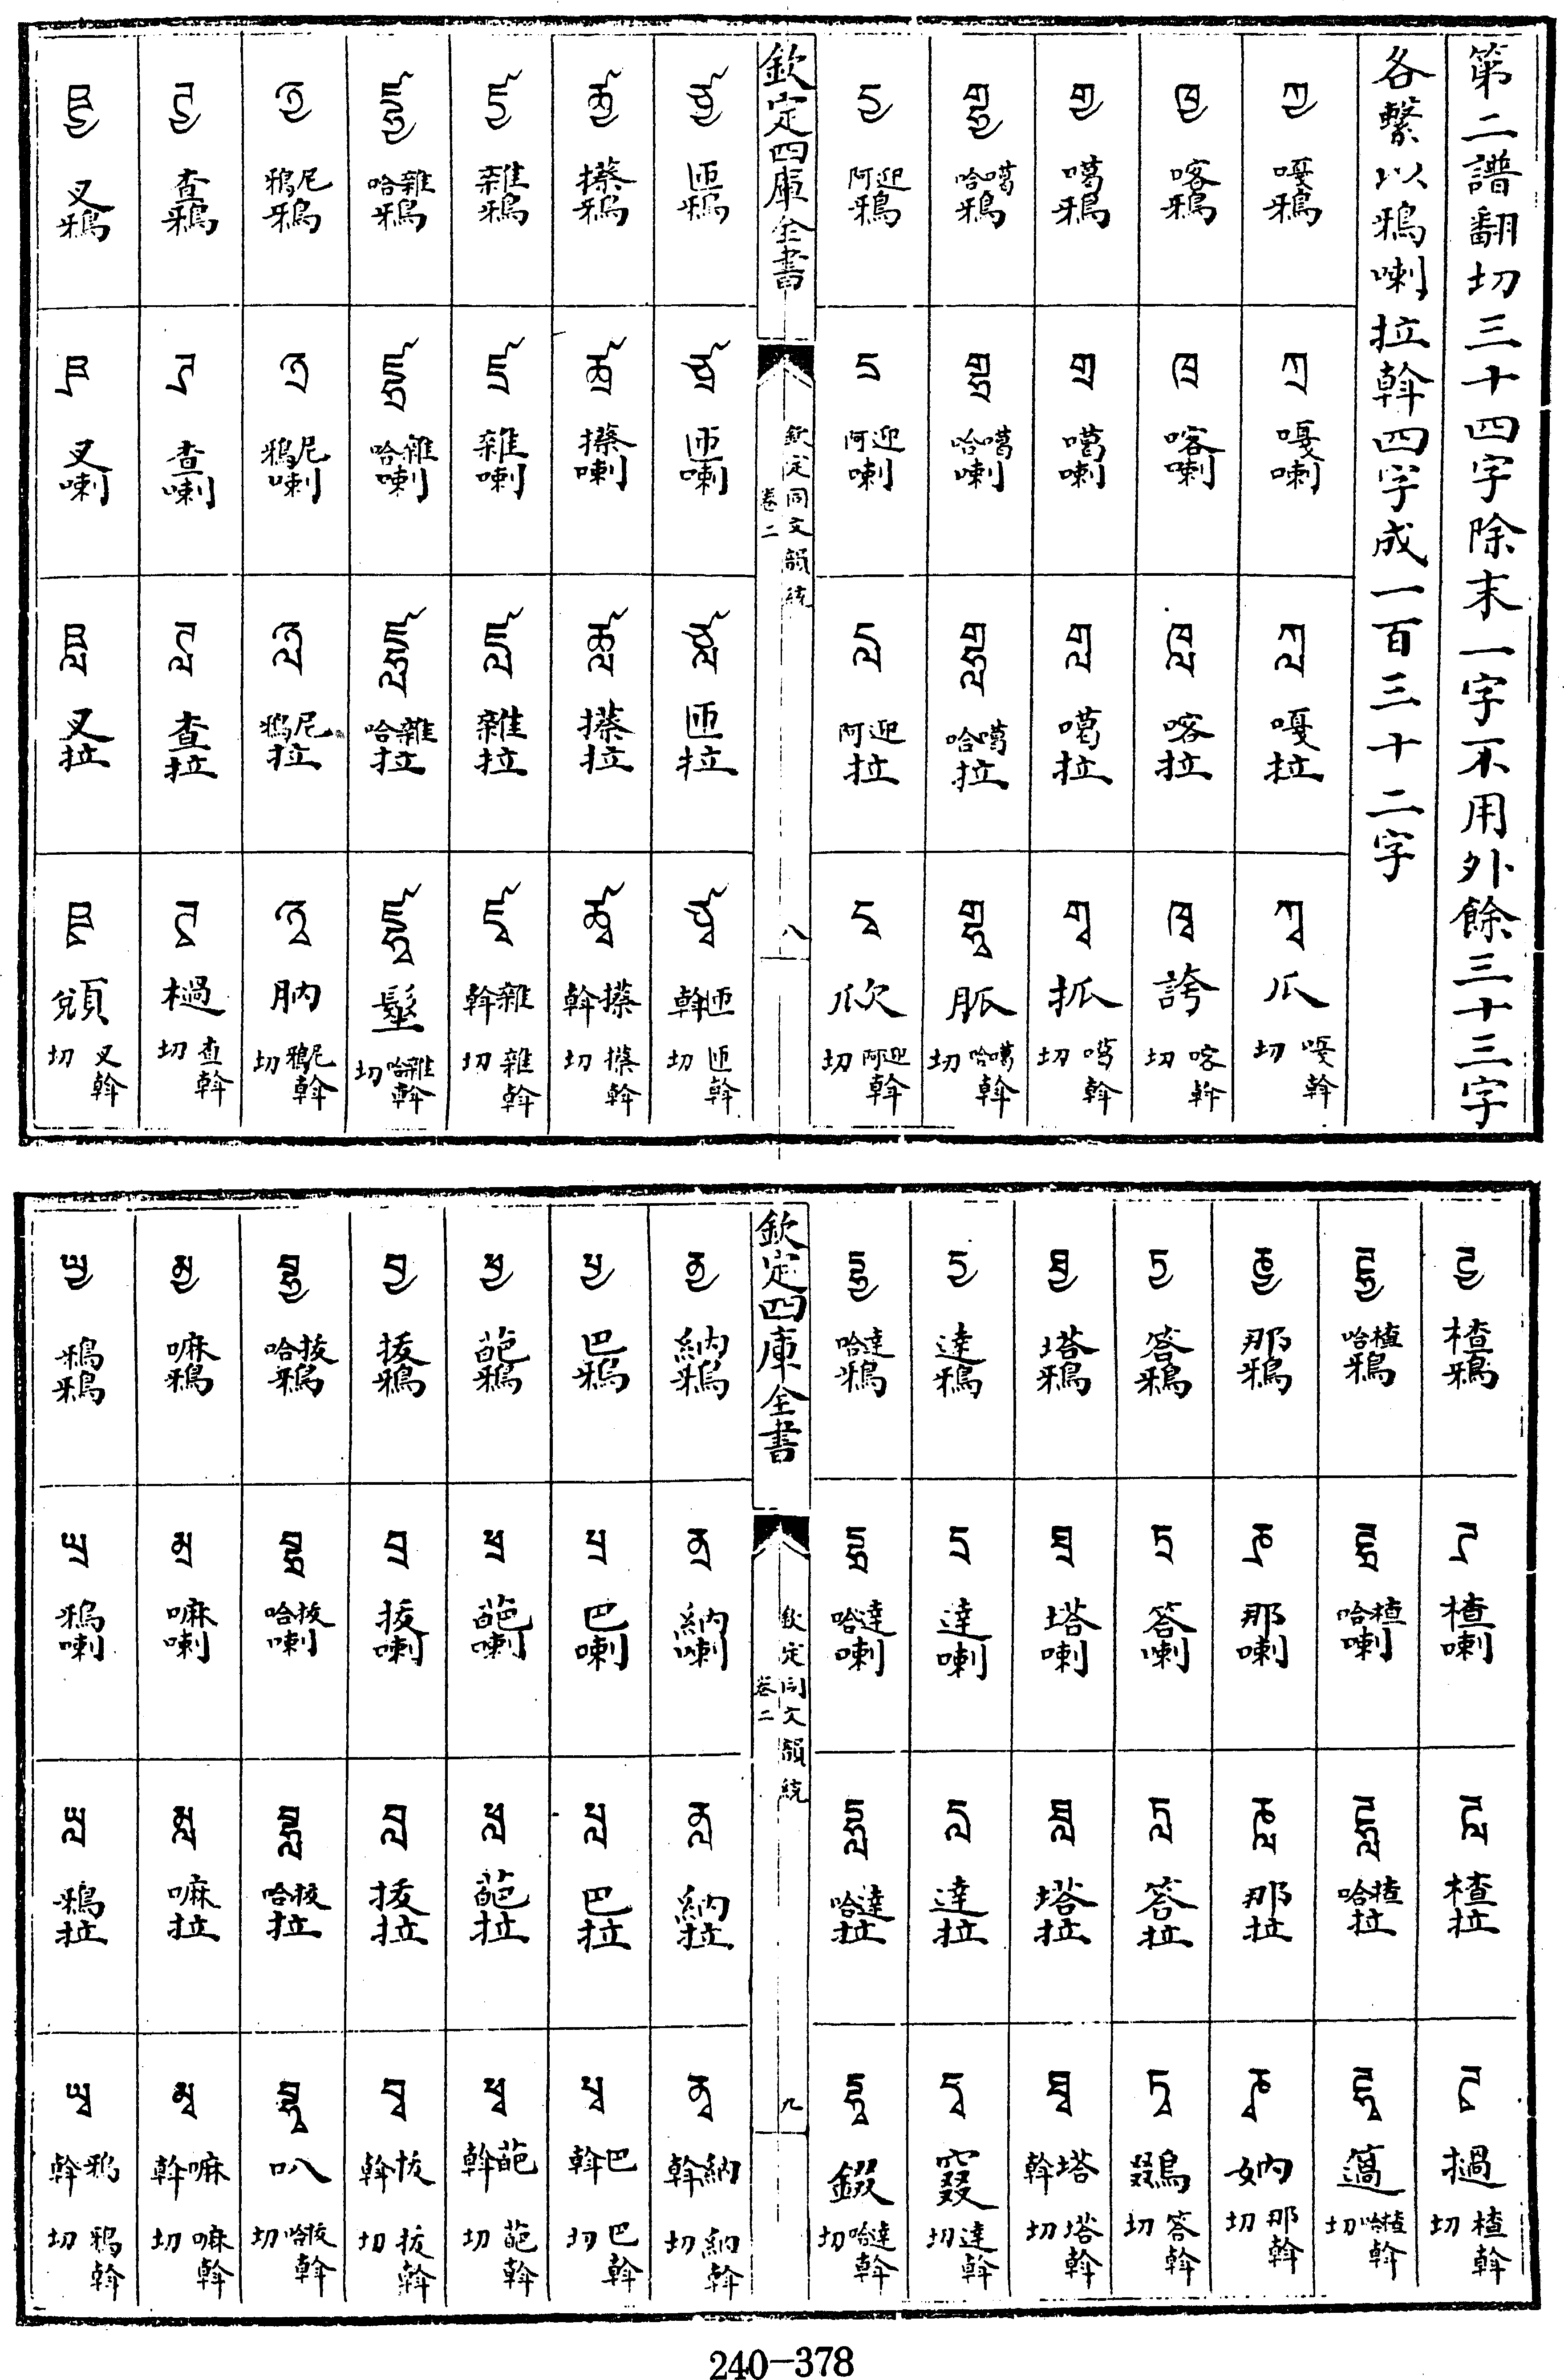 第二譜翻切三十四字除末一字不用外餘三十三字
各繫以鴉喇拉斡四字成一百三十二字
ཀྱ 嘎鴉 ཀྲ 嘎喇 ཀླ 嘎拉 ཀྭ 瓜 嘎斡切
ཁྱ 喀鴉 ཁྲ 喀喇 ཁླ 喀拉 ཁྭ 誇 喀斡切
གྱ 噶鴉 གྲ 噶喇 གླ 噶拉 གྭ 㧓 噶斡切
གྷྱ 噶哈鴉 གྷྲ 噶哈喇 གྷླ 噶哈拉 གྷྭ 胍 噶哈斡切
ངྱ 迎阿鴉 ངྲ 迎阿喇 ངླ 迎阿拉 ངྭ 迎阿斡切
欽定四庫全書
欽定同文韻統
卷二
八
ཙྱ 匝鴉 ཙྲ 匝喇 ཙླ 匝拉 ཙྭ 匝斡 匝斡切
ཚྱ 攃鴉 ཚྲ 攃喇 ཚླ 攃拉 ཚྭ 攃斡 攃斡切
ཛྱ 雜鴉 ཛྲ 雜喇 ཛླ 雜拉 ཛྭ 雜斡 雜斡切
ཛྷྱ 雜哈鴉 ཛྷྲ 雜哈喇 ཛྷླ 雜哈拉 ཛྷྭ 髽 雜哈斡切
ཉྱ 尼鴉鴉 ཉྲ 尼鴉喇 ཉླ 尼鴉拉 ཉྭ 肭 尼鴉斡切
ཊྱ 查鴉 ཊྲ 查喇 ཊླ 查拉 ཊྭ 檛 查斡切
ཋྱ 叉鴉 ཋྲ 叉喇 ཋླ 叉拉 ཋྭ 叉斡切
ཌྱ 楂鴉 ཌྲ 楂喇 ཌླ 楂拉 ཌྭ 撾 楂斡切
ཌྷྱ 楂哈鴉 ཌྷྲ 楂哈喇 ཌྷླ 楂哈拉 ཌྷྭ 薖 楂哈斡切
ཎྱ 那鴉 ཎྲ 那喇 ཎླ 那拉 ཎྭ 妠 那斡切
ཏྱ 答鴉 ཏྲ 答喇 ཏླ 答拉 ཏྭ 鵽 答斡切
ཐྱ 塔鴉 ཐྲ 塔喇 ཐླ 塔拉 ཐྭ 塔斡 塔斡切
དྱ 達鴉 དྲ 達喇 དླ 達拉 དྭ 窡 達斡切
དྷྱ 達哈鴉 དྷྲ 達哈喇 དྷླ 達哈拉 དྷྭ 錣 達哈斡切
欽定四庫全書
欽定同文韻統
卷二
九
ནྱ 納鴉 ནྲ 納喇 ནླ 納拉 ནྭ 納斡 納斡切
པྱ 巴鴉 པྲ 巴喇 པླ 巴拉 པྭ 巴斡 巴斡切
ཕྱ 葩鴉 ཕྲ 葩喇 ཕླ 葩拉 ཕྭ 葩斡 葩斡切
བྱ 拔鴉 བྲ 拔喇 བླ 拔拉 བྭ 拔斡 拔斡切
བྷྱ 拔哈鴉 བྷྲ 拔哈喇 བྷླ 拔哈拉 བྷྭ 叭 拔哈斡切
མྱ 嘛鴉 མྲ 嘛喇 མླ 嘛拉 མྭ 嘛斡 嘛斡切
ཡྱ 鴉鴉 ཡྲ 鴉喇 ཡླ 鴉拉 ཡྭ 鴉斡 鴉斡切
240-378